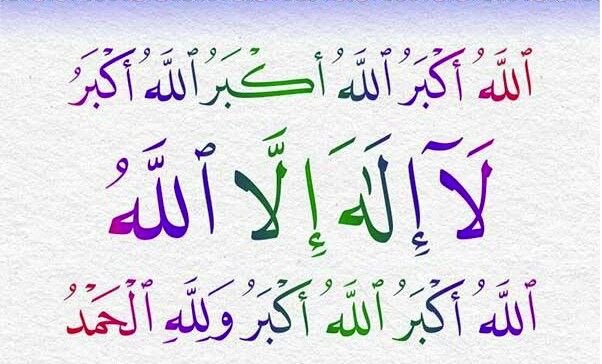 ٱللَّهُ أَكْبَرُ ٱللَّهُ أَكْبَرُ ٱللَّهُ أَكْبَرُ
لَآ إِلَٰهَ إِلَّا ٱللَّهُ
ٱللَّهُ أَكْبَرُ ٱللَّهُ أَكْبَرُ وَلِلَّهِ ٱلْحَمْدُ